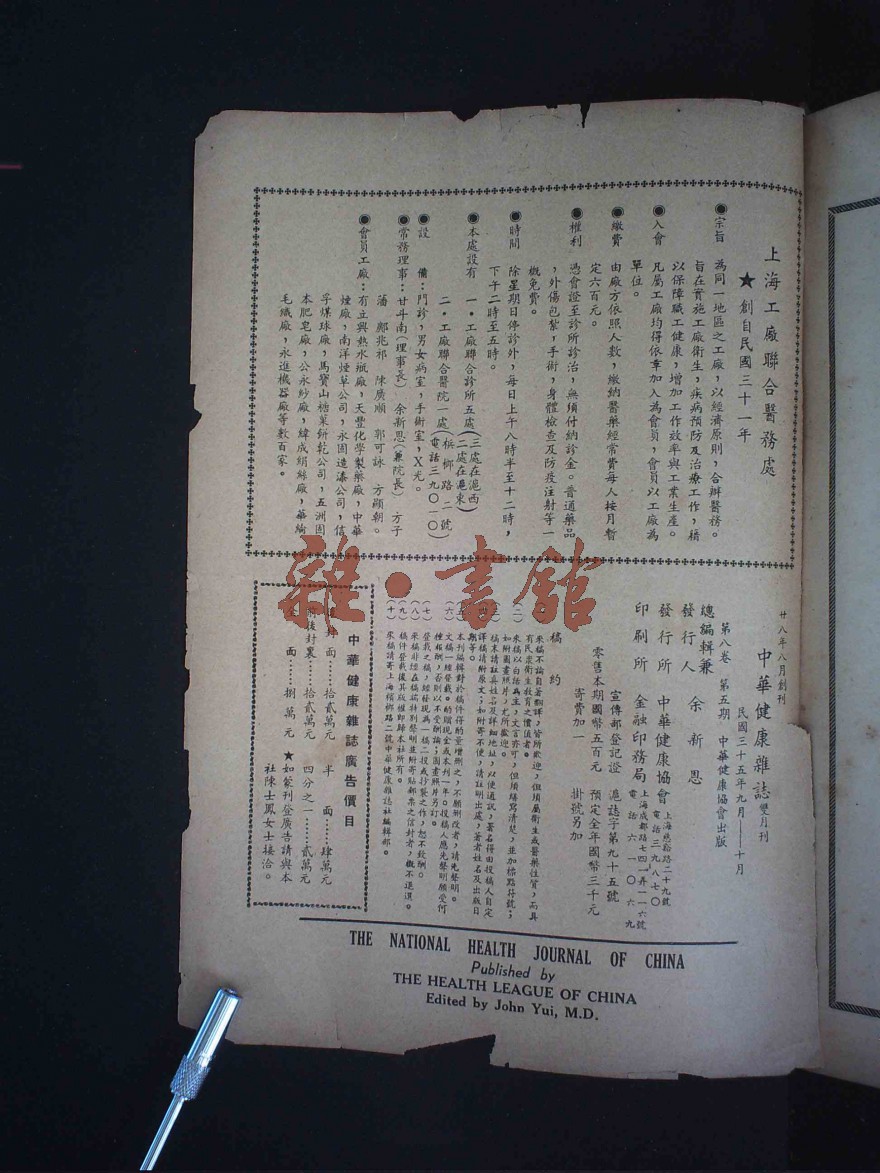 上海工廠聯合醫務處
★ 創自民國三十一年
◉宗旨 為同一地區之工廠,以經濟原則,合辦醫務。
旨在實施工廠衛生,疾病預防及治療工作,藉
以保障職工健康,增加工作效率與工業生產。
◉入會 凡屬工廠均得依章加入為會員,會員以工廠為
單位。
◉繳費 由廠方依照人數,繳納醫藥經常費每人按月暫
定六百元。
◉權利 憑會證至診所診治,無須付納診金。普通藥品
,外傷包紮,手術,身體檢查及防疫注射等一
概免費。
◉時間 除星期日停診外,每日上午八時半至十二時,
下午二時至五時。
◉本處設有 一・工廠聯合診所五處(三處在滬西 二處在滬東)
二・工廠聯合醫院一處(檳榔路二號 電話三九〇一〇)
◉設備:門診,男女病室,手術室,X光。
◉常務理事:甘斗南(理事長) 余新恩(兼院長) 方子
藩 鄭兆祁 陳廣順 郭可詠 方顯朝。
◉會員工廠:有立興熱水瓶廠,天豐化學製藥廠,中華
煙廠,南洋煙草公司,永固造漆公司,信
孚煤球廠,馬寶山糖菓餅乾公司,五洲固
本肥皂廠,公永紗廠,緯成絹絲廠,華綸
毛織廠,永進機器廠等數百家。
廿八年八月創刊
中華健康雜誌 雙月刊
民國三十五年九月——十月
第八卷 第五期 中華健康協會出版
總編輯兼
發行人 余新恩
發行所 中華健康協會 上海慈谿路二十九號 電話三九八七〇
印刷所 金融印務局 上海成都路七四一弄一一六號 電話六一〇六九
宣傳郵登記證 滬誌字第九十五號
零售本期國幣五百元 預定全年國幣三千元
寄費加一 掛號另加
稿約
來稿不論自著翻譯,皆所歡迎,但須屬衛生或醫藥性質,而具
有民眾衛生教育之價值者。
(二)來稿以白話為主,文言亦可,但須繕寫清楚,並加標點符號;
如附圖畫照片,尤所歡迎。
稿末請註真姓名及詳細地址,以便通訊,著名得由投稿人自定
譯稿請附原文;如附寄不便,請註明出處,著者姓名及出版日
期等。
本刊編輯對於稿件得酌量增刪之,不願刪改者,請先聲明。
(六)文稿一經登載,酌贈現金或本刊一年。投稿人應先聲明願受何
種報酬,否則以不受酬論;圖畫照片另訂。
(七)登載之稿,經發現為一稿二投或抄襲之作,恕不致酬。
(八)來稿非經在稿端特別聲明並附寄貼郵票之信封者,概不退還。
(九)稿件登載後其版權即歸本社所有。
(十)來稿請寄上海檳榔路二號中華健康雜誌社編輯部。
中華健康雜誌廣告價目
前後封裏……拾貳萬元
全面……捌萬元
半面……肆萬元
四分之一……貳萬元
★如蒙刊登廣告請與本
社陳士鳳女士接洽。
THE NATIONAL HEALTH JOURNAL OF CHINA
Published by
THE HEALTH LEAGUE OF CHINA
Edited by John Yui, M.D.
雜・書館